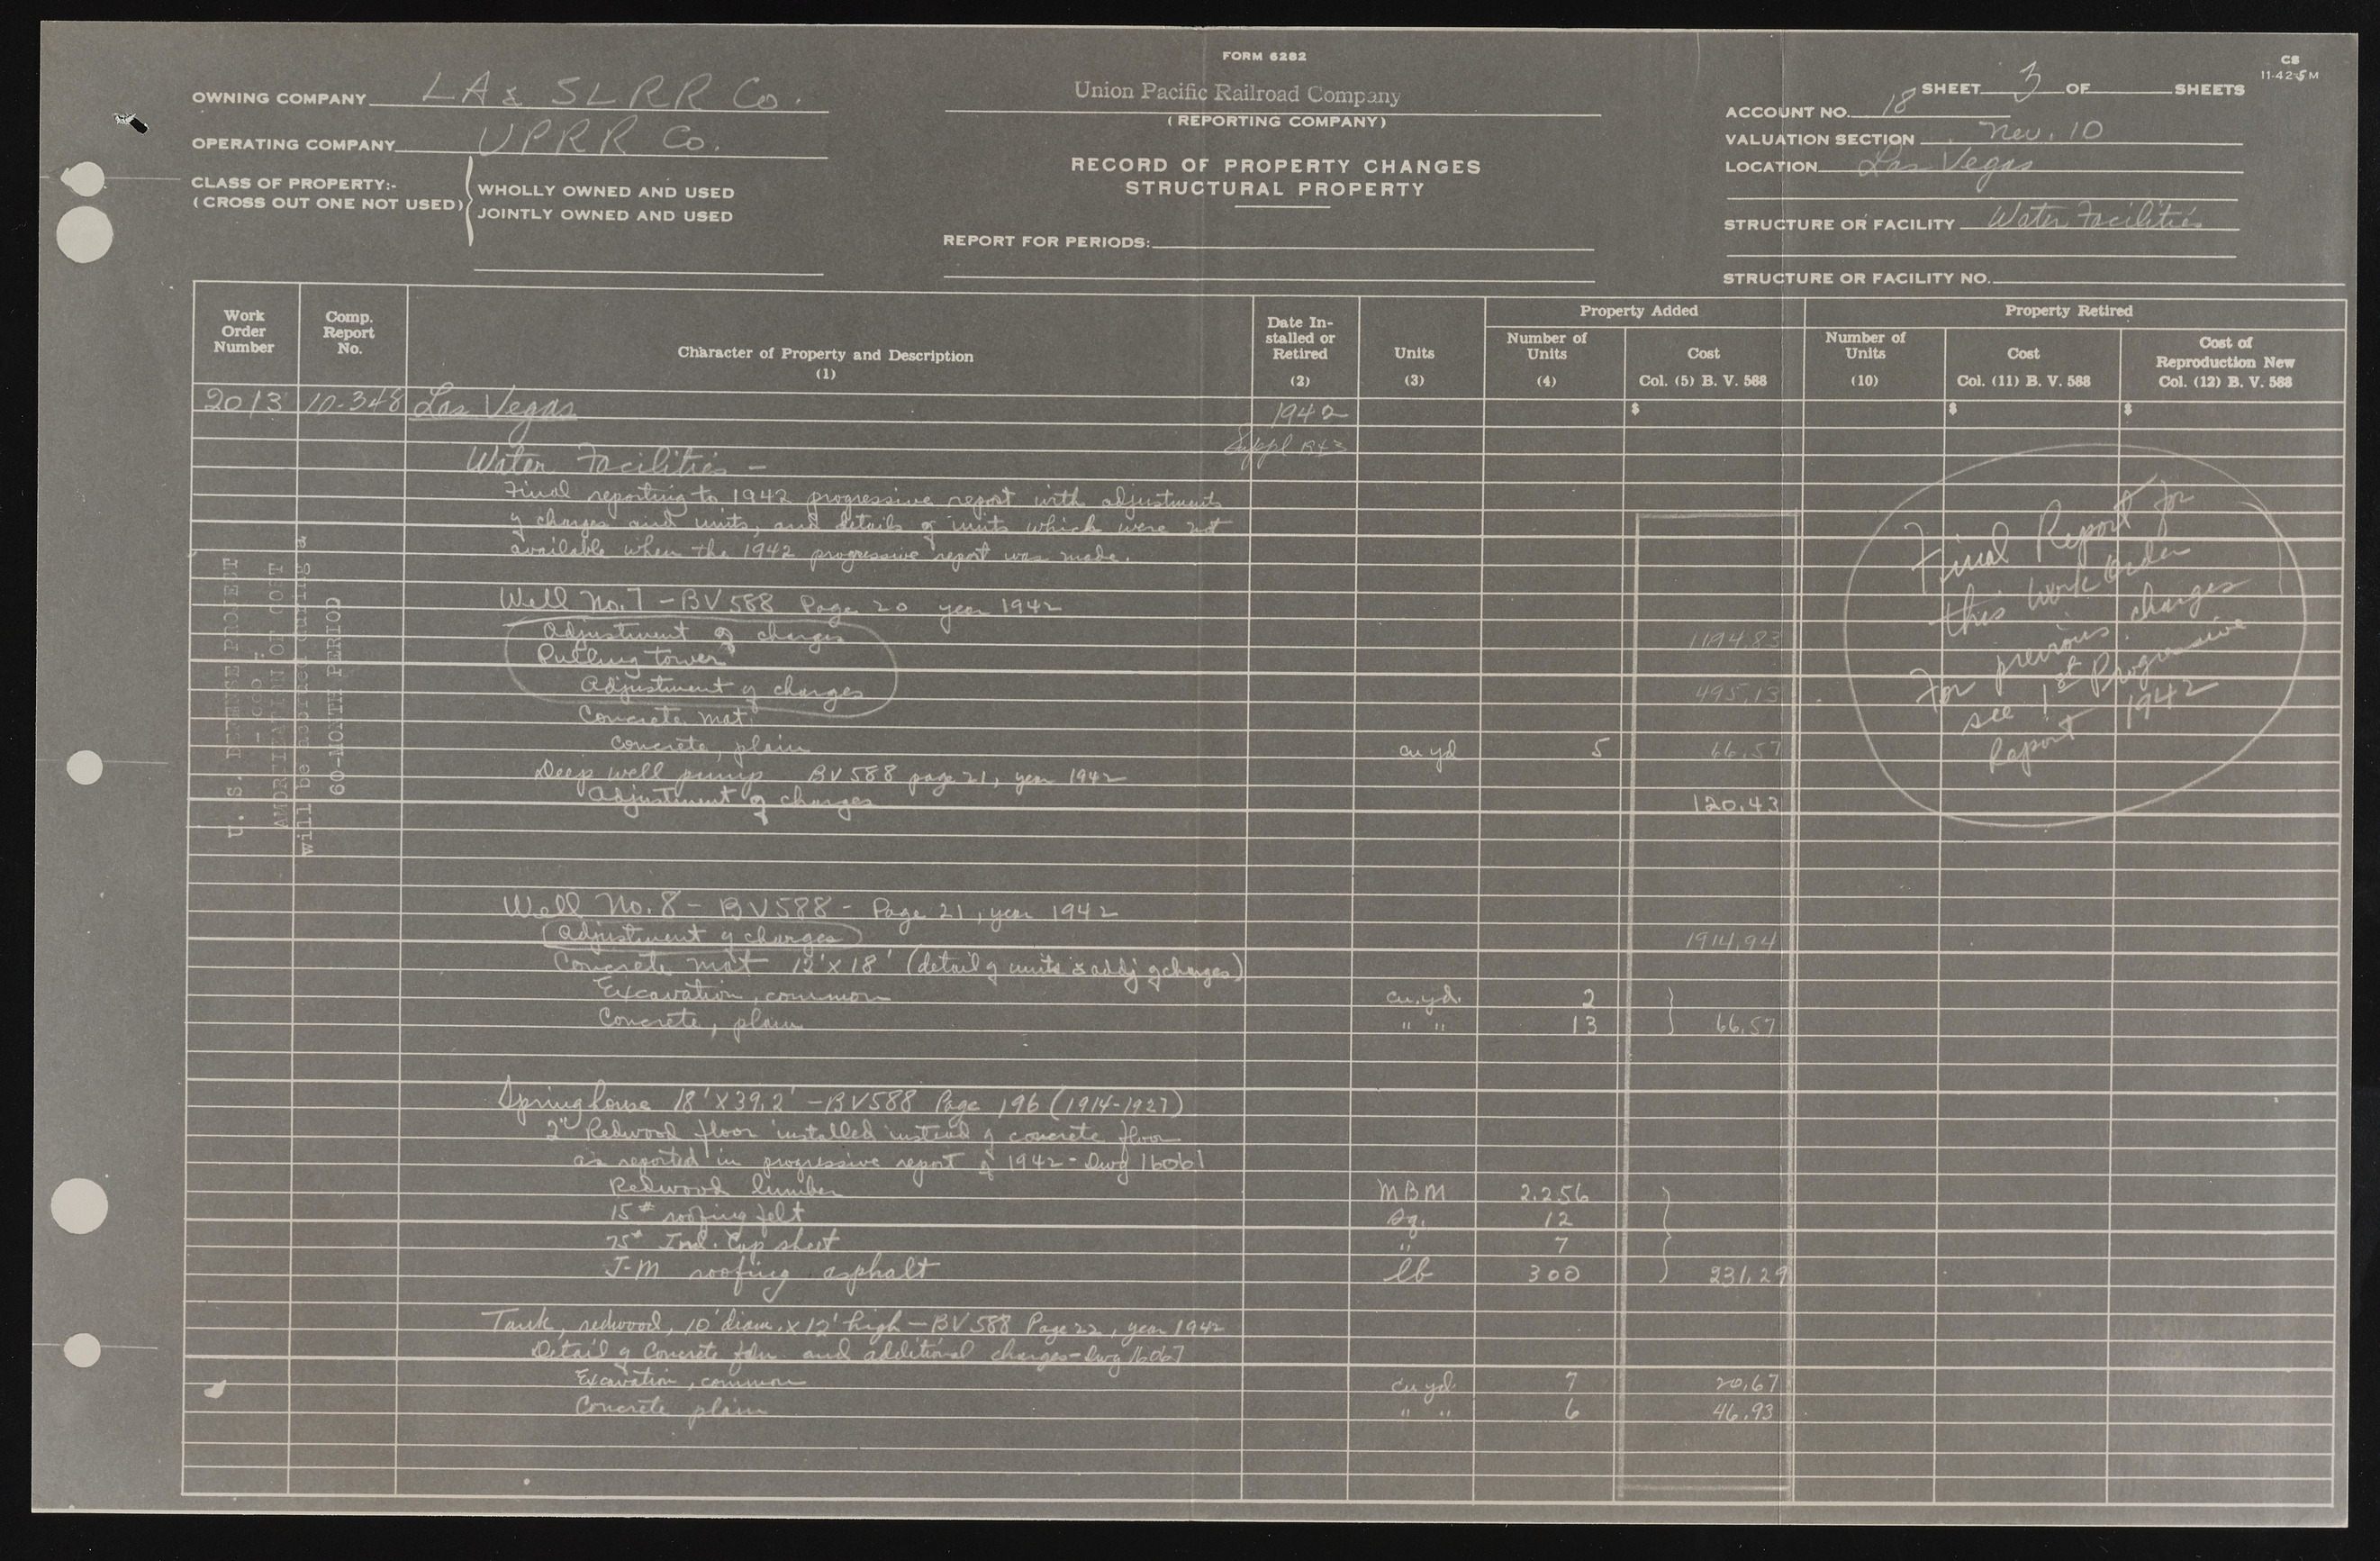 FORM 6282
CS
11-42-5M
OWNING COMPANY LA & SLRR Co.
OPERATING COMPANY UPRR Co.
CLASS OF PROPERTY:-
(CROSS OUT ONE NOT USED)
WHOLLY OWNED AND USED
JOINTLY OWNED AND USED
Union Pacific Railroad Company
(REPORTING COMPANY)
RECORD OF PROPERTY CHANGES
STRUCTURAL PROPERTY
REPORT FOR PERIODS:
SHEET 3 OF SHEETS
ACCOUNT NO. 18
VALUATION SECTION Nev. 10
LOCATION Las Vegas
STRUCTURE OR FACILITY Water Facilities
STRUCTURE OR FACILITY NO.
Work Order Number
Comp. Report No.
Character of Property and Description (1)
Date Installed or Retired (2)
Units (3)
Property Added
Number of Units (4)
Cost Col. (5) B. V. 588
Property Retired
Number of Units (10)
Cost Col. (11) B. V. 588
Cost of Reproduction New Col. (12) B. V. 588
2013 10-348 Las Vegas 1942 $ $ $
Suppl
Water Facilities -
Final reporting to 1942 progressive report with adjustments
of charges and units, and details of units which were not
available when the 1942 progressive report was made.
Well No. 7 - BV 588 Page 20 year 1942
Adjustment of charges 1194.83
Pulling tower
Adjustment of charges 495.13
Concrete mat
Concrete, plain cu yd 5 66.57
Deep well pump BV 588 page 21, year 1942
Adjustment of charges 120.43
Well No. 8 - BV 588 - Page 21, year 1942
Adjustment of charges 1914.94
Concrete mat 12' x 18' (detail of units & adj of charges)
Excavation, common cu. yd. 2
Concrete, plain " " 13 66.57
Springhouse 18' x 39.2' - BV 588 Page 196 (1914-1927)
2" Redwood floor installed instead of concrete floor
as reported in progressive report of 1942 - Dwg 16061
Redwood lumber MBM 2.256
15# roofing felt Sq. 12
75# Ind. Cap sheet " 7
J-M roofing asphalt lb 300 231.29
Tank, redwood, 10' diam. x 12' high - BV 588 Page 22, year 1942
Detail of Concrete fdn and additional charges - Dwg 16067
Excavation, common cu yd. 7 20.67
Concrete plain " " 6 46.93
Final Report for
this Work Order
For previous charges
see 1st Progressive
Report 1942
U. S. DEFENSE PROJECT
AMORTIZATION OF COST
will be assigned during a
60-MONTH PERIOD